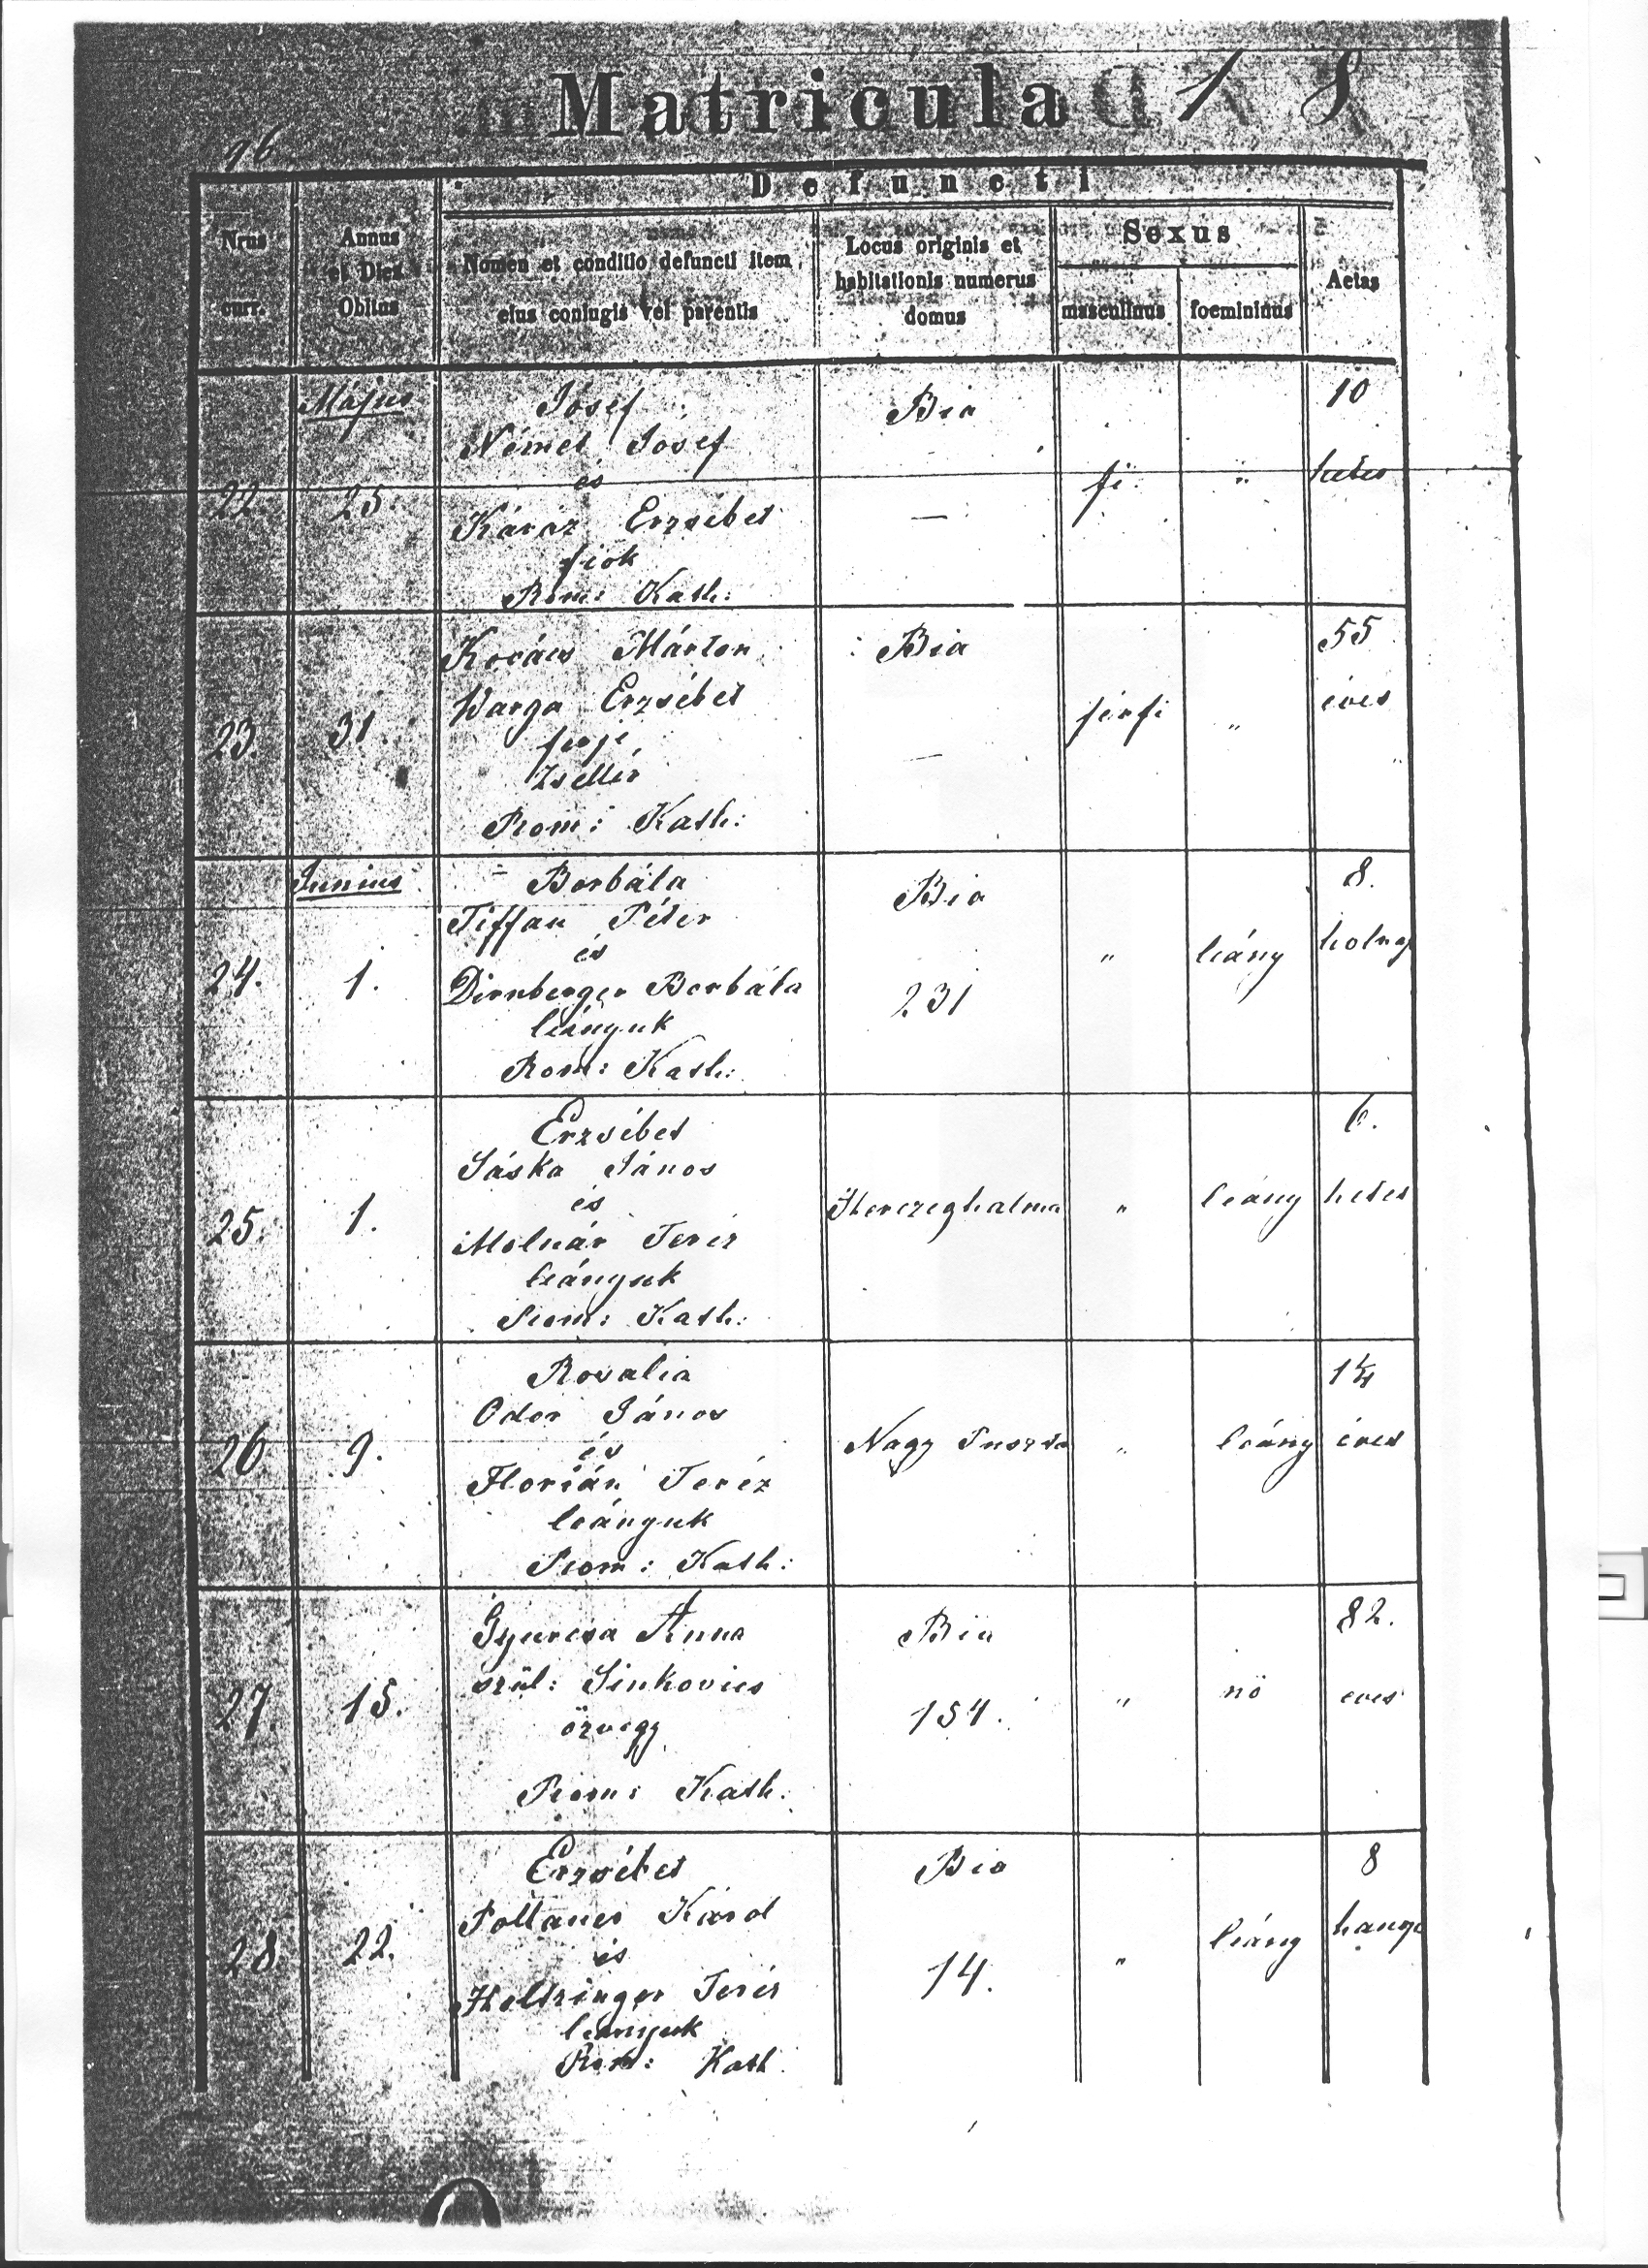 Matricula 18
96
Defuncti
Nrus curr.
Annus et Dies Obitus
Nomen et conditio defuncti item eius coniugis vel parentis
Locus originis et habitationis numerus domus
Sexus
masculinus
foemininus
Aetas
Május
22.
25.
Jósef
Német Jósef
és
Káraz Erzsébet
fiok
Rom: Kath:
Bia
—
fi
"
10
hetes
23.
31.
Kovács Márton
Warga Erzsébet
férje
Zsellér
Rom: Kath:
Bia
—
férfi
"
55
éves
Junius
24.
1.
Borbála
Tiffan Péter
és
Dirnberger Borbála
leányuk
Rom: Kath:
Bia
231
"
leány
8.
holnap
25.
1.
Erzsébet
Sáska János
és
Molnár Teréz
leányuk
Rom: Kath:
Herczeghalma
"
leány
6.
hetes
26
9.
Rosalia
Odor János
és
Florián Teréz
leányuk
Rom: Kath:
Nagy Puszta
"
leány
1¼
éves
27.
15.
Gyurcsa Anna
szül: Sinkovics
özvegy
Rom: Kath:
Bia
"
nö
82.
eves
28.
22.
Erzsébet
Károl
és
Holtzinger Teréz
leányuk
Rom: Kath.
Bia
14.
"
leány
8